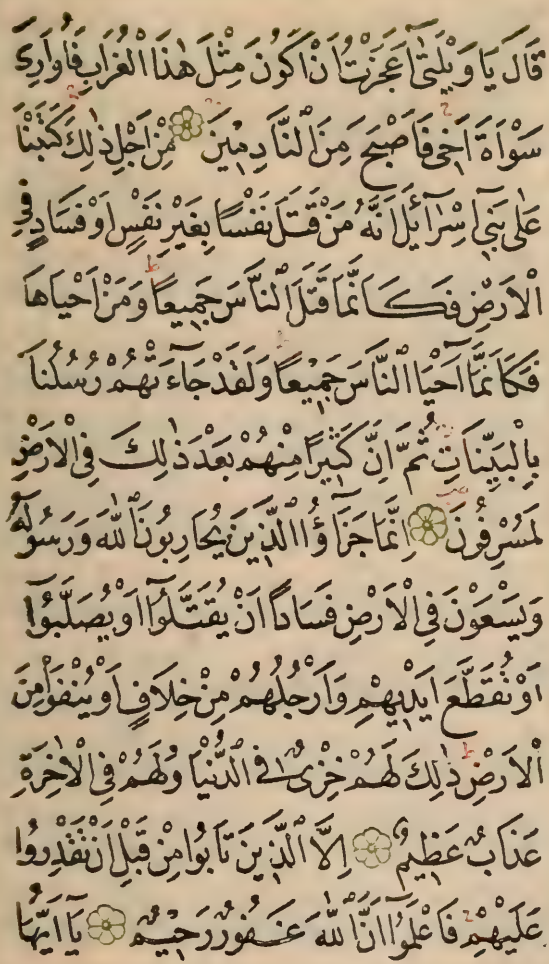 قَالَ يَا وَيْلَتٰٓى اَعَجَزْتُ اَنْ اَكُونَ مِثْلَ هٰذَا الْغُرَابِ فَاُوَارِىَ
سَوْاَةَ اَخ۪ى فَاَصْبَحَ مِنَ النَّادِم۪ينَ ۞ مِنْ اَجْلِ ذٰلِكَ كَتَبْنَا
عَلٰى بَن۪ٓى اِسْرَٓائ۪لَ اَنَّهُ مَنْ قَتَلَ نَفْسًا بِغَيْرِ نَفْسٍ اَوْ فَسَادٍ فِى
الْاَرْضِ فَكَاَنَّمَا قَتَلَ النَّاسَ جَم۪يعًا وَمَنْ اَحْيَاهَا
فَكَاَنَّمَٓا اَحْيَا النَّاسَ جَم۪يعًا وَلَقَدْ جَٓاءَتْهُمْ رُسُلُنَا
بِالْبَيِّنَاتِ ثُمَّ اِنَّ كَث۪يرًا مِنْهُمْ بَعْدَ ذٰلِكَ فِى الْاَرْضِ
لَمُسْرِفُونَ ۞ اِنَّمَا جَزٰٓؤُا الَّذ۪ينَ يُحَارِبُونَ اللّٰهَ وَرَسُولَهُ
وَيَسْعَوْنَ فِى الْاَرْضِ فَسَادًا اَنْ يُقَتَّلُٓوا اَوْ يُصَلَّبُٓوا
اَوْ تُقَطَّعَ اَيْد۪يهِمْ وَاَرْجُلُهُمْ مِنْ خِلَافٍ اَوْ يُنْفَوْا مِنَ
الْاَرْضِ ذٰلِكَ لَهُمْ خِزْىٌ فِى الدُّنْيَا وَلَهُمْ فِى الْاٰخِرَةِ
عَذَابٌ عَظ۪يمٌ ۞ اِلَّا الَّذ۪ينَ تَابُوا مِنْ قَبْلِ اَنْ تَقْدِرُوا
عَلَيْهِمْ فَاعْلَمُٓوا اَنَّ اللّٰهَ غَفُورٌ رَح۪يمٌ ۞ يَٓا اَيُّهَا